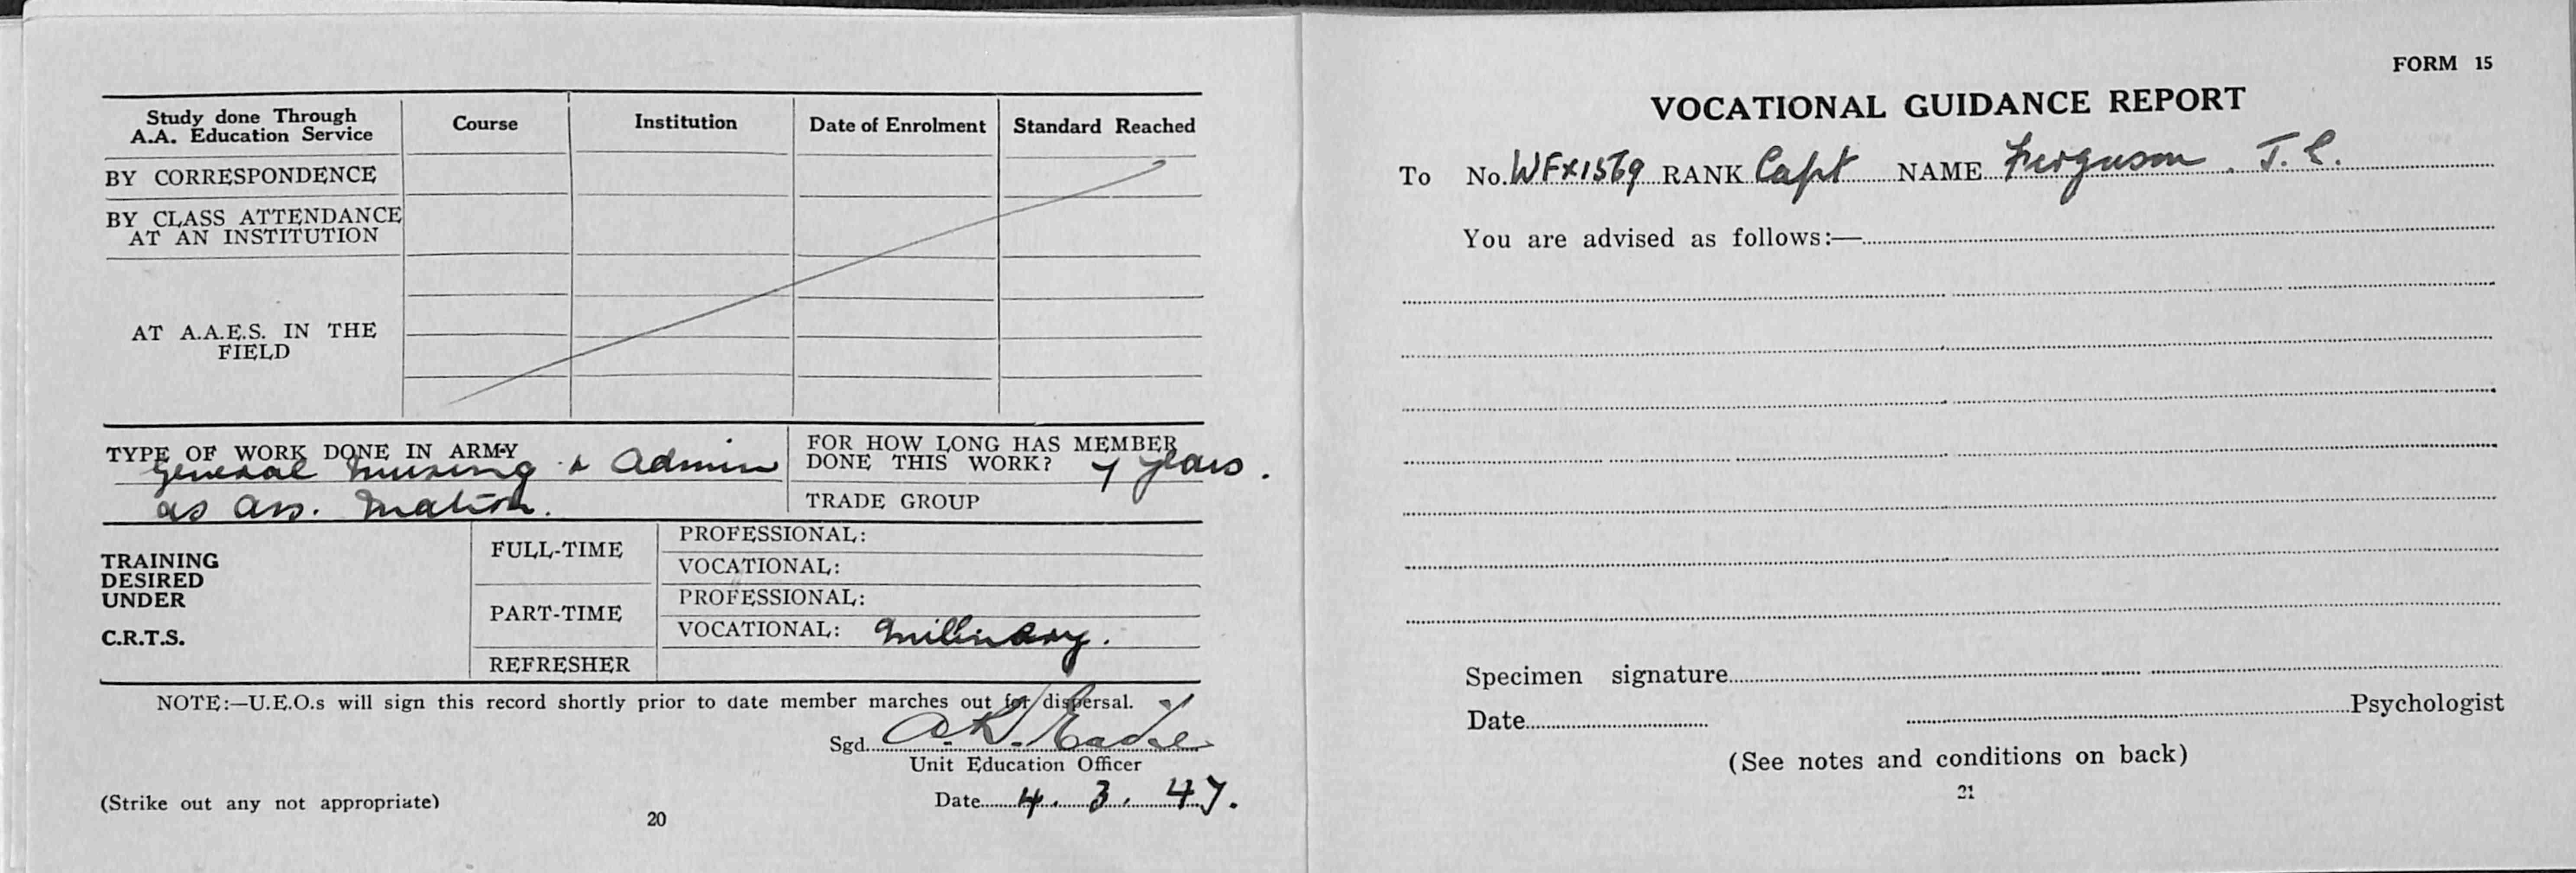 Study done Through
A.A. Education Service
Course
Institution
Date of Enrolment
Standard Reached
BY CORRESPONDENCE
BY CLASS ATTENDANCE
AT AN INSTITUTION
AT A.A.E.S. IN THE
FIELD
TYPE OF WORK DONE IN ARMY
General Nursing & Admin
as Ass. Matron.
FOR HOW LONG HAS MEMBER
DONE THIS WORK? 7 years.
TRADE GROUP
TRAINING
DESIRED
UNDER
C.R.T.S.
FULL-TIME
PROFESSIONAL:
VOCATIONAL:
PART-TIME
PROFESSIONAL:
VOCATIONAL: Millinery.
REFRESHER
NOTE:—U.E.O.s will sign this record shortly prior to date member marches out for dispersal.
Sgd. A.K. Eadie
Unit Education Officer
Date 4. 3. 47.
(Strike out any not appropriate)
20
FORM 15
VOCATIONAL GUIDANCE REPORT
To No. WFX1569 RANK Capt NAME Ferguson. J.C.
You are advised as follows:—
Specimen signature
Date Psychologist
(See notes and conditions on back)
21